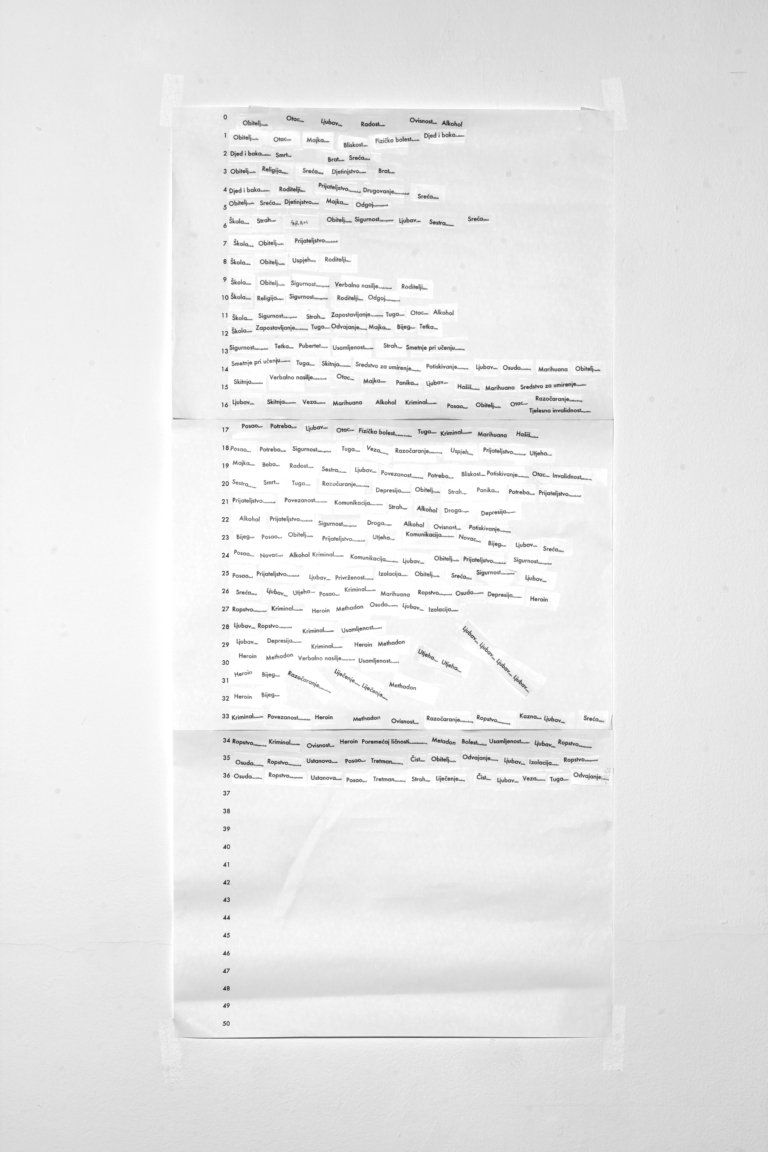 0 Obitelj... Otac... Ljubav... Radost... Ovisnost... Alkohol
1 Obitelj... Otac... Majka... Bliskost... Fizička bolest...... Djed i baka......
2 Djed i baka...... Smrt... Brat... Sreća...
3 Obitelj... Religija... Sreća... Djetinjstvo... Brat...
4 Djed i baka...... Roditelji... Prijateljstvo...... Drugovanje...... Sreća...
5 Obitelj... Sreća... Djetinjstvo... Majka... Odgoj......
6 Škola... Strah... Obitelj... Sigurnost...... Ljubav... Sestra... Sreća...
7 Škola... Obitelj... Prijateljstvo......
8 Škola... Obitelj... Uspjeh... Roditelji...
9 Škola... Obitelj... Sigurnost...... Verbalno nasilje...... Roditelji...
10 Škola... Religija... Sigurnost...... Roditelji... Odgoj......
11 Škola... Sigurnost...... Strah... Zapostavljanje... Tuga... Otac... Alkohol
12 Škola... Zapostavljanje... Tuga... Odvajanje... Majka... Bijeg... Tetka...
13 Sigurnost...... Tetka... Pubertet... Usamljenost... Strah... Smetnje pri učenju...
14 Smetnje pri učenju... Tuga... Skitnja... Sredstvo za umirenje... Potiskivanje... Ljubav... Osuda... Marihuana Obitelj...
15 Skitnja...... Verbalno nasilje...... Otac... Majka... Panika... Ljubav... Hašiš... Marihuana Sredstvo za umirenje...
16 Ljubav... Skitnja... Veza... Marihuana Alkohol Kriminal... Posao... Obitelj... Otac... Razočaranje... Tjelesna invalidnost...
17 Posao... Potreba... Ljubav... Otac... Fizička bolest...... Tuga... Kriminal... Marihuana Hašiš...
18 Posao... Potreba... Sigurnost... Tuga... Veza... Razočaranje...... Uspjeh... Prijateljstvo...... Utjeha...
19 Majka... Beba... Radost... Sestra... Ljubav... Povezanost... Potreba... Bliskost... Potiskivanje... Otac... Invalidnost...
20 Sestra... Smrt... Tuga... Razočaranje... Depresija... Obitelj... Strah... Panika... Potreba... Prijateljstvo...
21 Prijateljstvo...... Povezanost... Komunikacija... Strah... Alkohol Droga... Depresija...
22 Alkohol Prijateljstvo... Sigurnost... Droga... Alkohol Ovisnost... Potiskivanje...
23 Bijeg... Posao... Obitelj... Prijateljstvo... Utjeha... Komunikacija... Novac... Bijeg... Ljubav... Sreća...
24 Posao... Novac... Alkohol Kriminal... Komunikacija... Ljubav... Obitelj... Prijateljstvo... Sigurnost...
25 Posao... Prijateljstvo...... Ljubav... Privrženost... Izolacija... Obitelj... Sreća... Sigurnost... Ljubav...
26 Sreća... Ljubav... Utjeha... Posao... Kriminal... Marihuana Ropstvo... Osuda... Depresija... Heroin
27 Ropstvo... Kriminal... Heroin Methadon Osuda... Ljubav... Izolacija...
28 Ljubav... Ropstvo... Kriminal... Usamljenost...
29 Ljubav... Depresija... Kriminal... Heroin Methadon
Ljubav... Ljubav... Ljubav... Ljubav...
30 Heroin Methadon Verbalno nasilje...... Usamljenost... Utjeha... Utjeha...
31 Heroin Bijeg... Razočaranje... Liječenje... Liječenje... Methadon
32 Heroin Bijeg...
33 Kriminal... Povezanost... Heroin Methadon Ovisnost... Razočaranje... Ropstvo... Kazna... Ljubav... Sreća...
34 Ropstvo... Kriminal... Ovisnost... Heroin Poremećaj ličnosti...... Metadon Bolest... Usamljenost... Ljubav... Ropstvo...
35 Osuda... Ropstvo... Ustanova... Posao... Tretman... Čist... Obitelj... Odvajanje... Ljubav... Izolacija... Ropstvo...
36 Osuda... Ropstvo... Ustanova... Posao... Tretman... Strah... Liječenje... Čist... Ljubav... Veza... Tuga... Odvajanje...
37
38
39
40
41
42
43
44
45
46
47
48
49
50